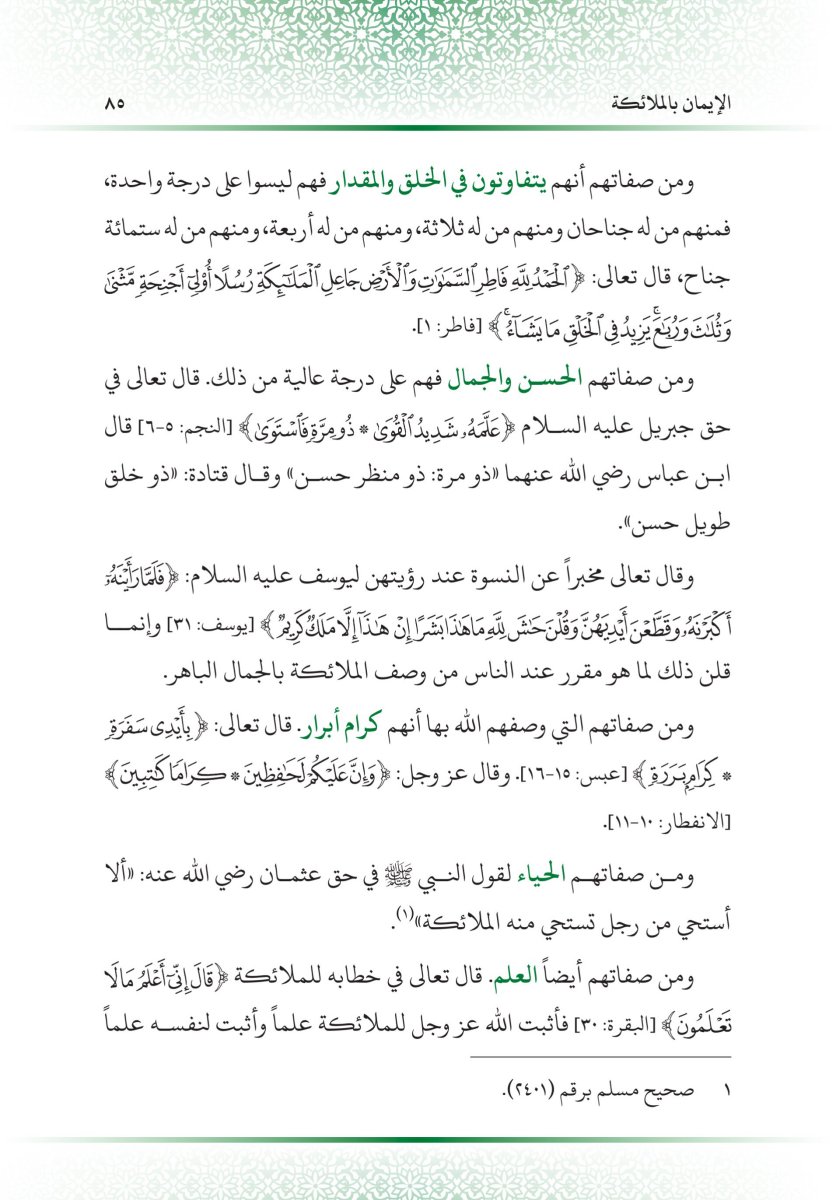 الإيمان بالملائكة ٨٥
ومن صفاتهم أنهم يتفاوتون في الخلق والمقدار فهم ليسوا على درجة واحدة،
فمنهم من له جناحان ومنهم من له ثلاثة، ومنهم من له أربعة، ومنهم من له ستمائة
جناح، قال تعالى: ﴿ٱلْحَمْدُ لِلَّهِ فَاطِرِ ٱلسَّمَٰوَٰتِ وَٱلْأَرْضِ جَاعِلِ ٱلْمَلَٰٓئِكَةِ رُسُلًا أُو۟لِىٓ أَجْنِحَةٍ مَّثْنَىٰ
وَثُلَٰثَ وَرُبَٰعَ ۚ يَزِيدُ فِى ٱلْخَلْقِ مَا يَشَآءُ ۚ﴾ [فاطر: ١].
ومن صفاتهم الحسن والجمال فهم على درجة عالية من ذلك. قال تعالى في
حق جبريل عليه السلام ﴿عَلَّمَهُۥ شَدِيدُ ٱلْقُوَىٰ * ذُو مِرَّةٍ فَٱسْتَوَىٰ﴾ [النجم: ٥-٦] قال
ابن عباس رضي الله عنهما «ذو مرة: ذو منظر حسن» وقال قتادة: «ذو خلق
طويل حسن».
وقال تعالى مخبراً عن النسوة عند رؤيتهن ليوسف عليه السلام: ﴿فَلَمَّا رَأَيْنَهُۥٓ
أَكْبَرْنَهُۥ وَقَطَّعْنَ أَيْدِيَهُنَّ وَقُلْنَ حَٰشَ لِلَّهِ مَا هَٰذَا بَشَرًا إِنْ هَٰذَآ إِلَّا مَلَكٌ كَرِيمٌ﴾ [يوسف: ٣١] وإنما
قلن ذلك لما هو مقرر عند الناس من وصف الملائكة بالجمال الباهر.
ومن صفاتهم التي وصفهم الله بها أنهم كرام أبرار. قال تعالى: ﴿بِأَيْدِى سَفَرَةٍ
* كِرَامٍۭ بَرَرَةٍ﴾ [عبس: ١٥-١٦]. وقال عز وجل: ﴿وَإِنَّ عَلَيْكُمْ لَحَٰفِظِينَ * كِرَامًا كَٰتِبِينَ﴾
[الانفطار: ١٠-١١].
ومن صفاتهم الحياء لقول النبي ﷺ في حق عثمان رضي الله عنه: «ألا
أستحي من رجل تستحي منه الملائكة»(١).
ومن صفاتهم أيضاً العلم. قال تعالى في خطابه للملائكة ﴿قَالَ إِنِّىٓ أَعْلَمُ مَا لَا
تَعْلَمُونَ﴾ [البقرة: ٣٠] فأثبت الله عز وجل للملائكة علماً وأثبت لنفسه علماً
١ صحيح مسلم برقم (٢٤٠١).